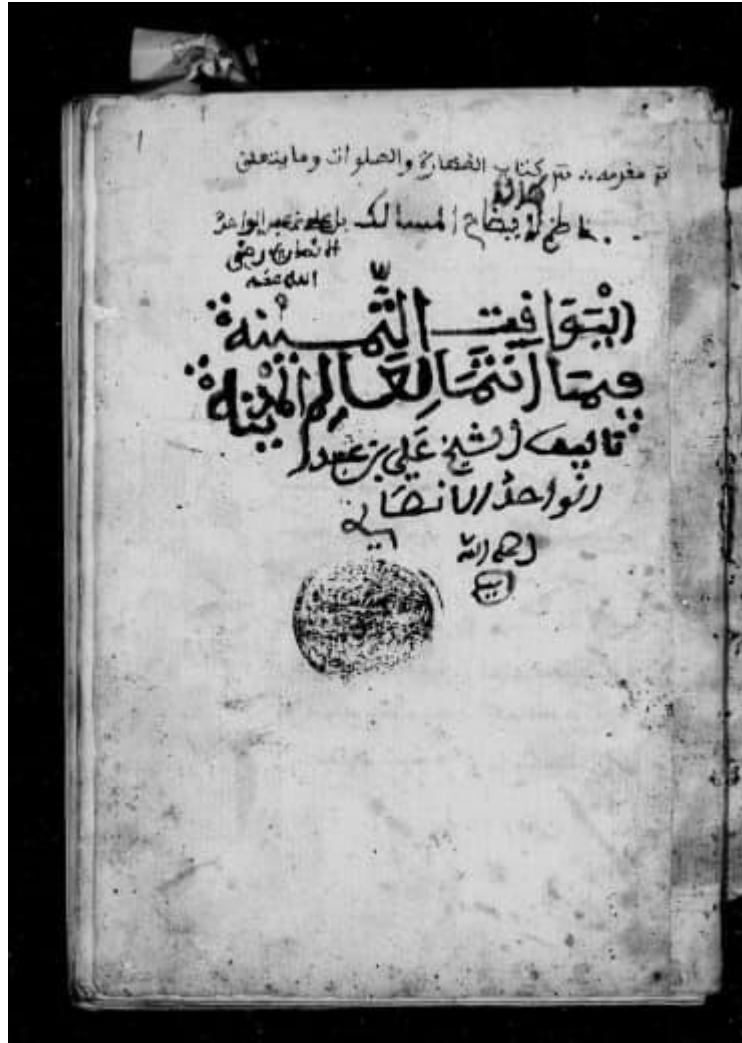 ثم مقدمة ثم كتاب الطهارة والصلوات وما يتعلق
المسالك بل علي بن عبد الواحد
الانصاري رضي
الله عنه
اليواقيت الثمينة
فيما انتما لعالم المدينة
تاليف الشيخ علي بن عبد
الواحد الانصاري
رحمه الله
امين